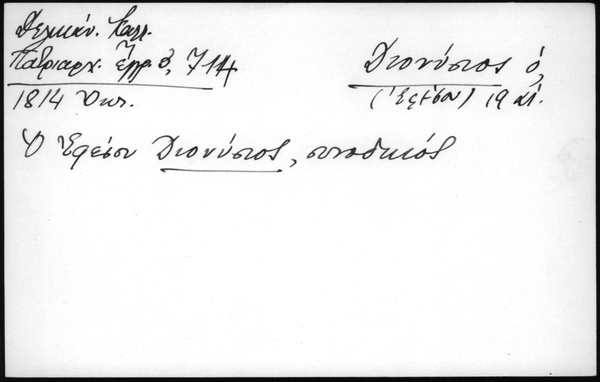 Δελικάν. Καλλ.
Πατριαρχ. ἔγγρ. 3, 714
1814 Ὀκτ.
Διονύσιος ὁ,
(Ἐφέσου) 19 αἰ.
Ὁ Ἐφέσου Διονύσιος, συνοδικός